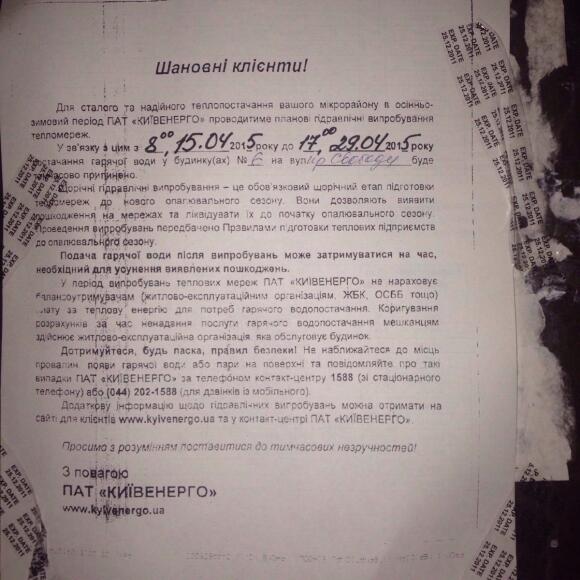 Шановні клієнти!
Для сталого та надійного теплопостачання вашого мікрорайону в осінньо-
зимовий період ПАТ «КИЇВЕНЕРГО» проводитиме планові гідравлічні випробування
тепломереж.
У зв'язку з цим з 8⁰⁰, 15.04 2015 року до 17⁰⁰, 29.04 2015 року
постачання гарячої води у будинку(ах) № 6 на вул. пр Свободи буде
тимчасово припинено.
Щорічні гідравлічні випробування – це обов'язковий щорічний етап підготовки
тепломереж до нового опалювального сезону. Вони дозволяють виявити
пошкодження на мережах та ліквідувати їх до початку опалювального сезону.
Проведення випробувань передбачено Правилами підготовки теплових підприємств
до опалювального сезону.
Подача гарячої води після випробувань може затримуватися на час,
необхідний для усунення виявлених пошкоджень.
У період випробувань теплових мереж ПАТ «КИЇВЕНЕРГО» не нараховує
балансоутримувачам (житлово-експлуатаційним організаціям, ЖБК, ОСББ тощо)
плату за теплову енергію для потреб гарячого водопостачання. Коригування
розрахунків за час ненадання послуги гарячого водопостачання мешканцям
здійснює житлово-експлуатаційна організація, яка обслуговує будинок.
Дотримуйтеся, будь ласка, правил безпеки! Не наближайтеся до місць
провалин, появи гарячої води або пари на поверхні та повідомляйте про такі
випадки ПАТ «КИЇВЕНЕРГО» за телефоном контакт-центру 1588 (зі стаціонарного
телефону) або (044) 202-1588 (для дзвінків із мобільного).
Додаткову інформацію щодо гідравлічних випробувань можна отримати на
сайті для клієнтів www.kyivenergo.ua та у контакт-центрі ПАТ «КИЇВЕНЕРГО».
Просимо з розумінням поставитися до тимчасових незручностей!
З повагою
ПАТ «КИЇВЕНЕРГО»
www.kyivenergo.ua
EXP. DATE
25.12.2011